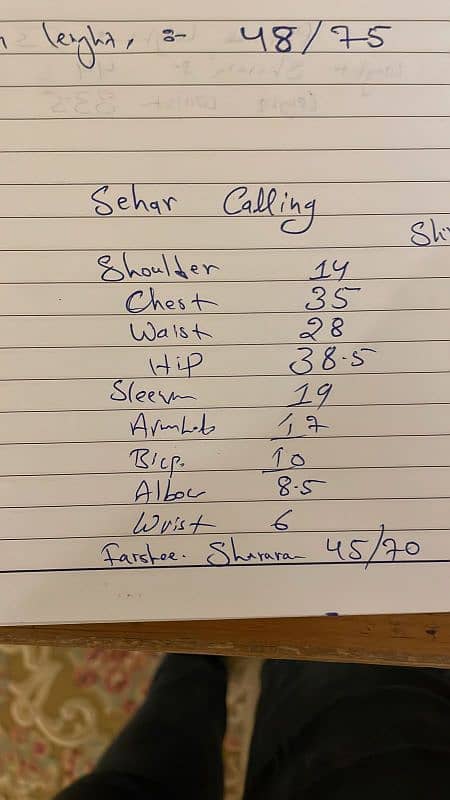 lenght, :- 48/75
Sehar Calling
Shoulder 14
Chest 35
Waist 28
Hip 38.5
19
17
Bicp. 10
Albow 8.5
Wrist 6
Farshee. Sharara 45/70